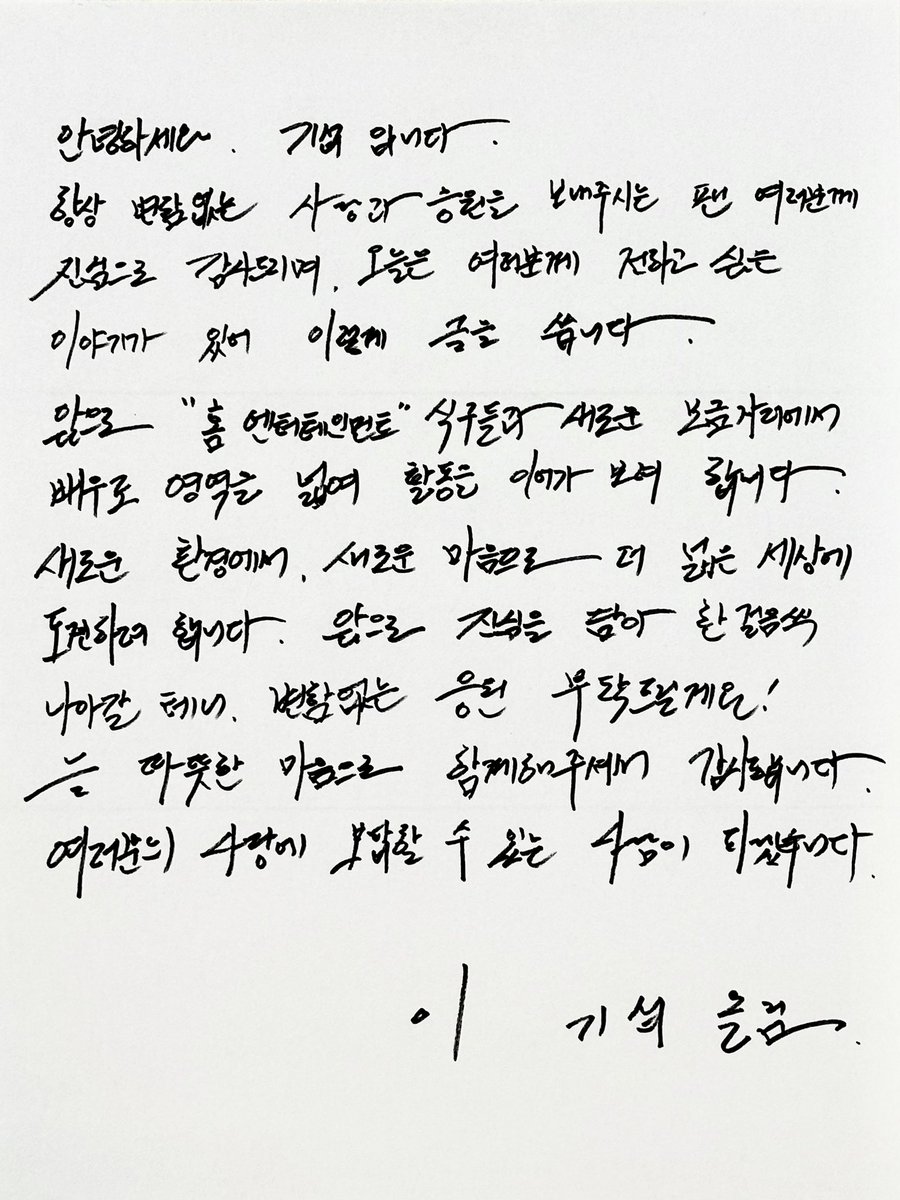 안녕하세요. 기섭 입니다.
항상 변함없는 사랑과 응원을 보내주시는 팬 여러분께
진심으로 감사드리며, 오늘은 여러분께 전하고 싶은
이야기가 있어 이렇게 글을 씁니다.
앞으로 "홈 엔터테인먼트" 식구들과 새로운 보금자리에서
배우로 영역을 넓혀 활동을 이어가 보려 합니다.
새로운 환경에서, 새로운 마음으로 더 넓은 세상에
도전하려 합니다. 앞으로 진심을 담아 한 걸음씩
나아갈 테니, 변함없는 응원 부탁드릴게요!
늘 따뜻한 마음으로 함께해주셔서 감사합니다.
여러분의 사랑에 보답할 수 있는 사람이 되겠습니다.
이 기섭 올림.